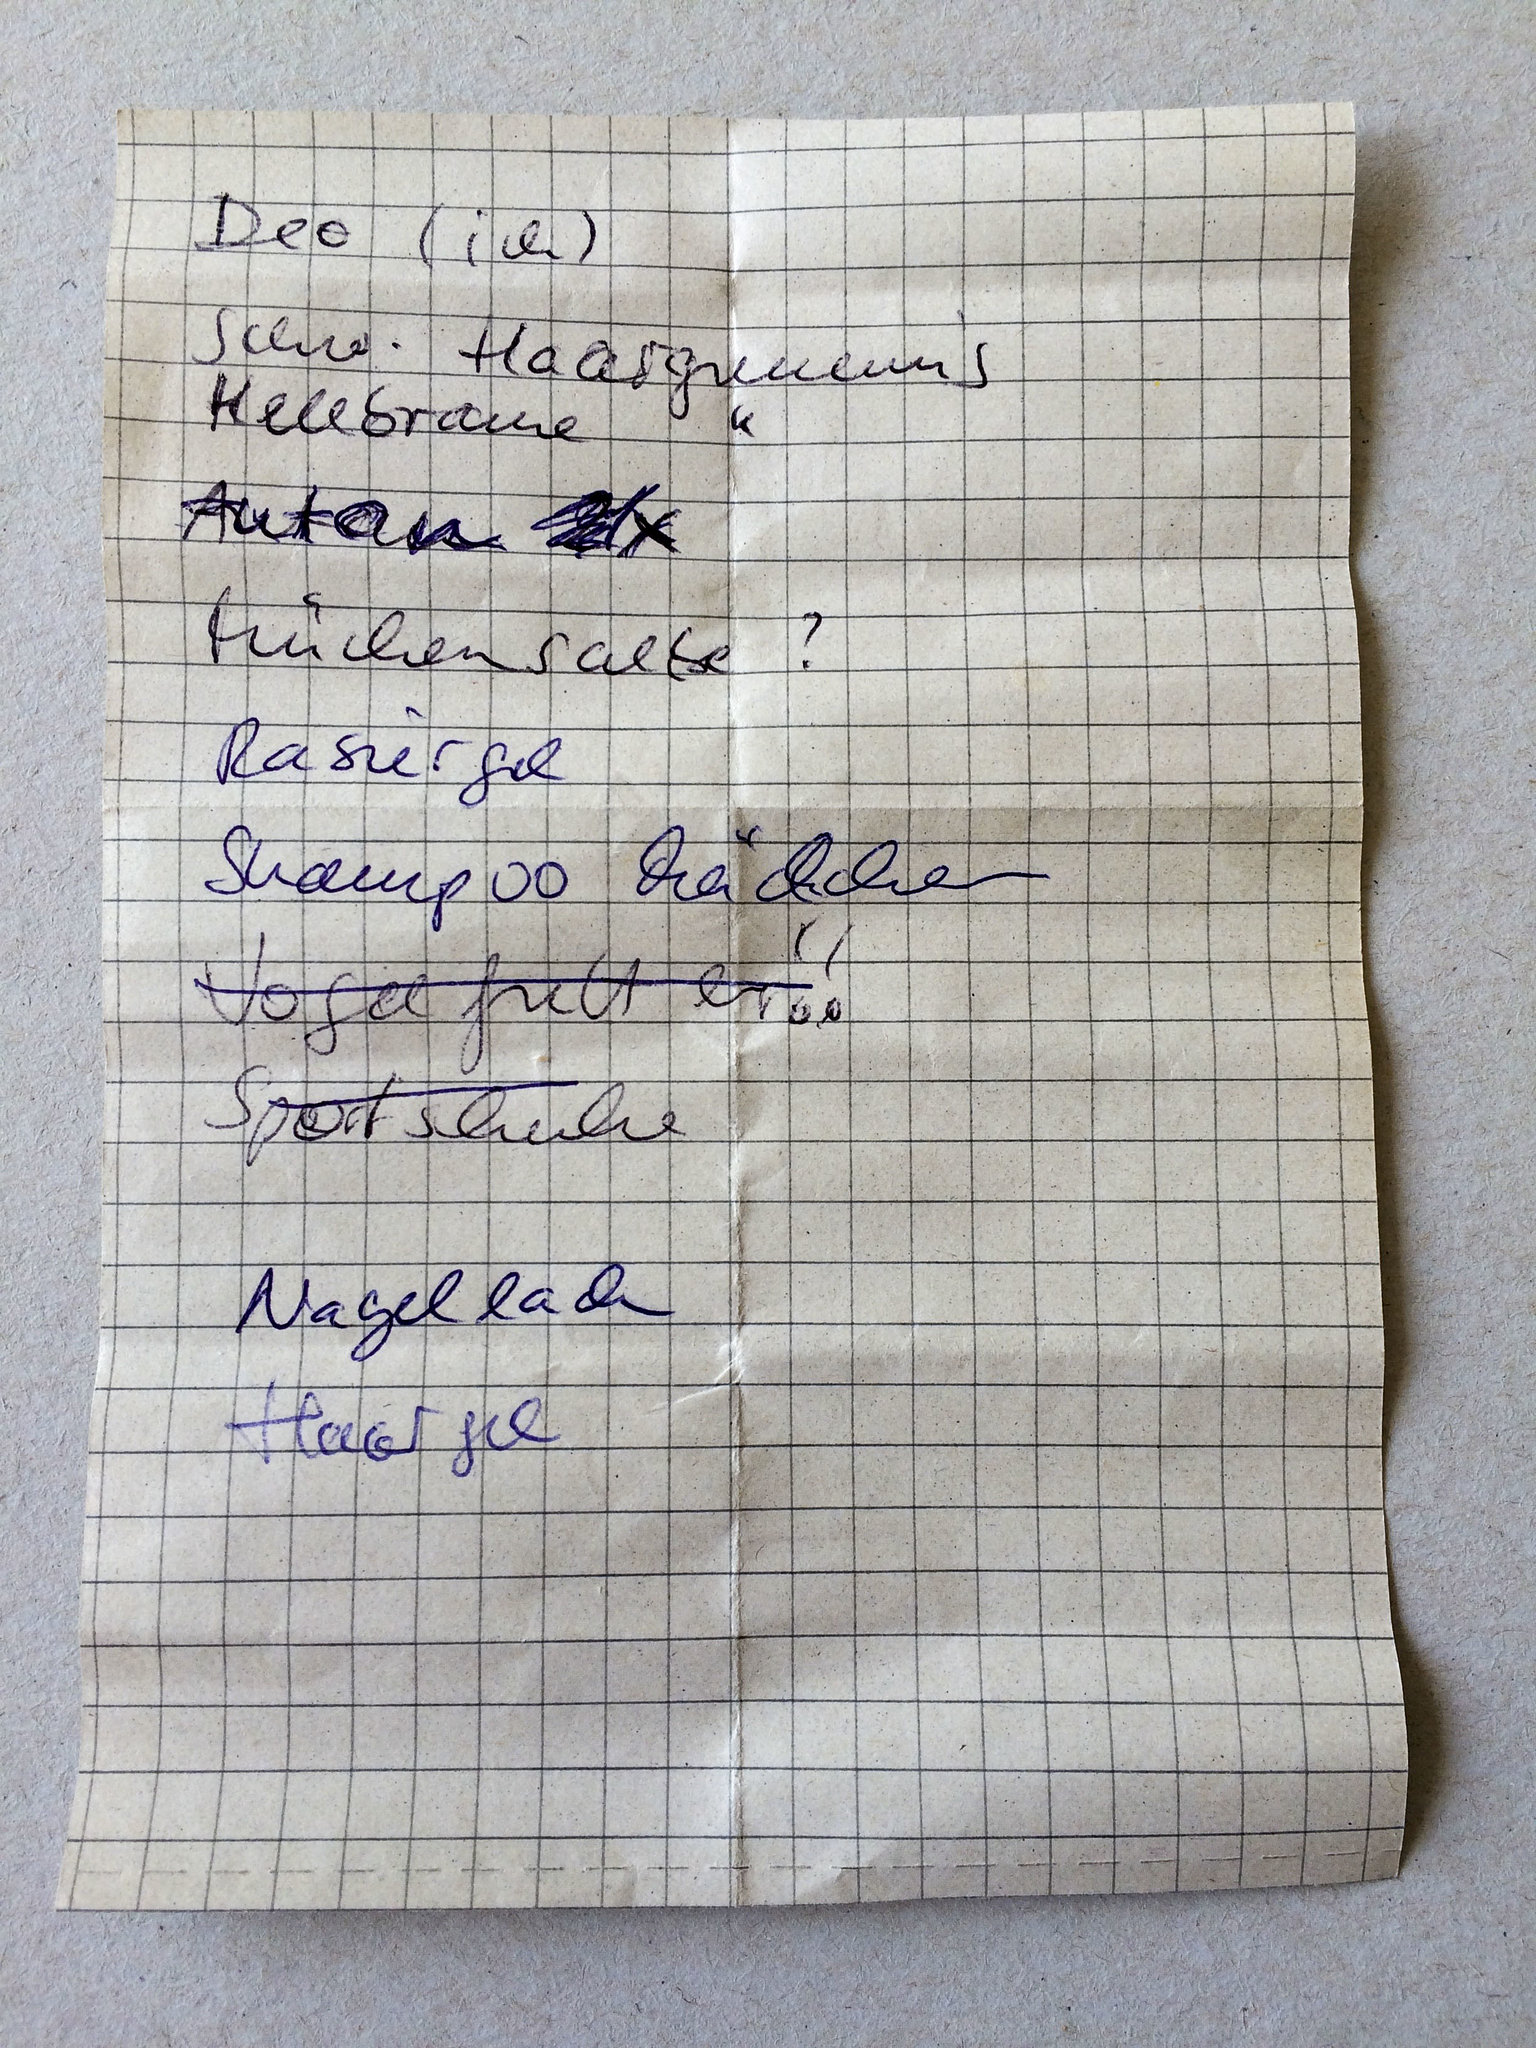 Deo (ich)
Schw. Haargummis
Hellbraune "
Autan
Mückensalbe ?
Rasiergel
Shampoo Mädchen
Vogelfutter!!!
Sportschuhe
Nagellack
Haargel